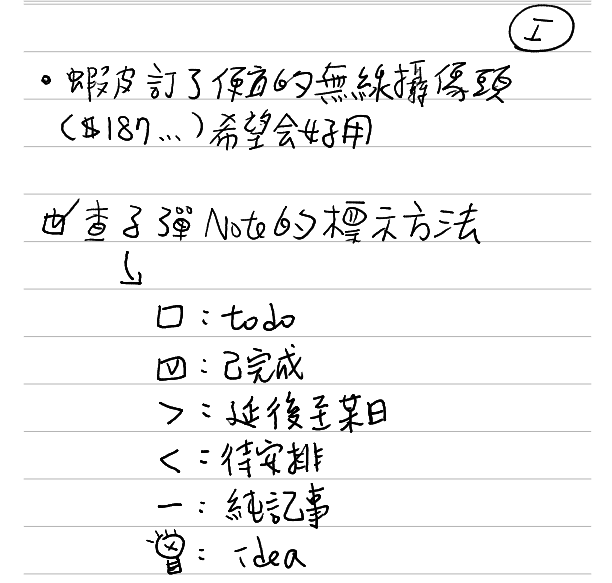 I
• 蝦皮訂了便宜的無線攝像頭
($187...)希望会好用
☑ 查子彈Note的標示方法
↳
□：todo
☑：已完成
>：延後至某日
<：待安排
—：純記事
💡：idea